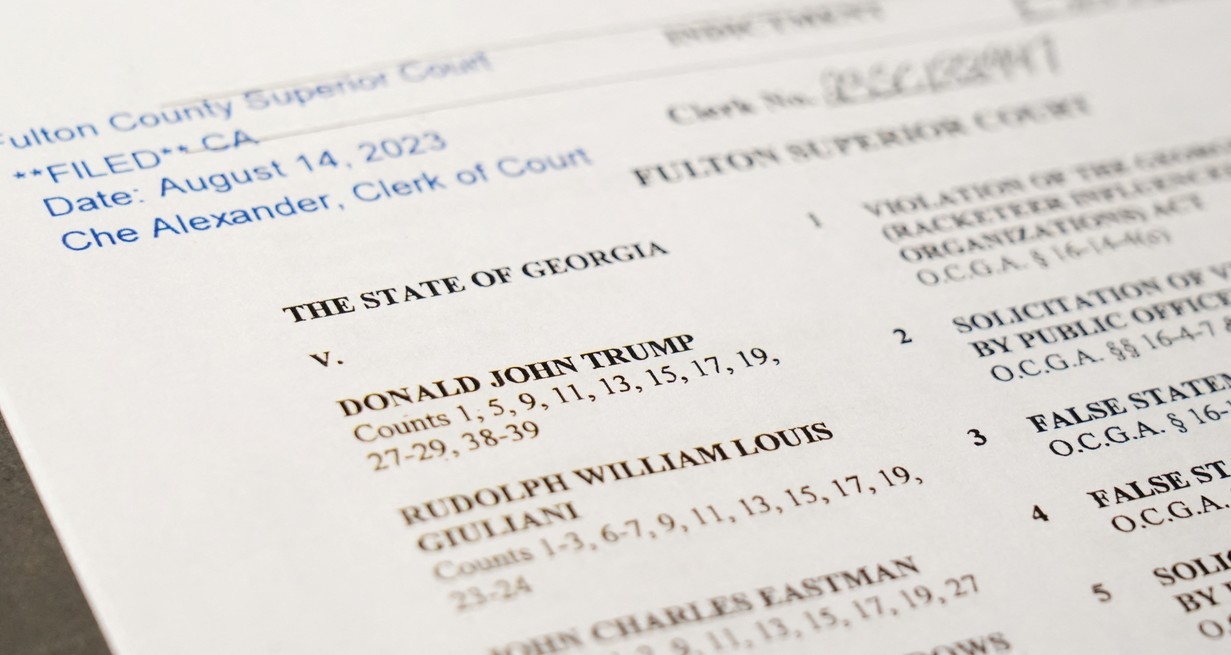 INDICTMENT
Fulton County Superior Court
**FILED** CA
Date: August 14, 2023
Che Alexander, Clerk of Court
Clerk No.
FULTON SUPERIOR COURT
THE STATE OF GEORGIA
v.
DONALD JOHN TRUMP
Counts 1, 5, 9, 11, 13, 15, 17, 19,
27-29, 38-39
RUDOLPH WILLIAM LOUIS
GIULIANI
Counts 1-3, 6-7, 9, 11, 13, 15, 17, 19,
23-24
JOHN CHARLES EASTMAN
9, 11, 13, 15, 17, 19, 27
1 VIOLATION OF THE
(RACKETEER
ORGANIZATIONS) ACT
O.C.G.A. § 16-14-4(c)
2 SOLICITATION OF
BY PUBLIC
O.C.G.A. §§ 16-4-7 &
3 FALSE
O.C.G.A. § 16-
4 FALSE
O.C.G.A.
5
BY